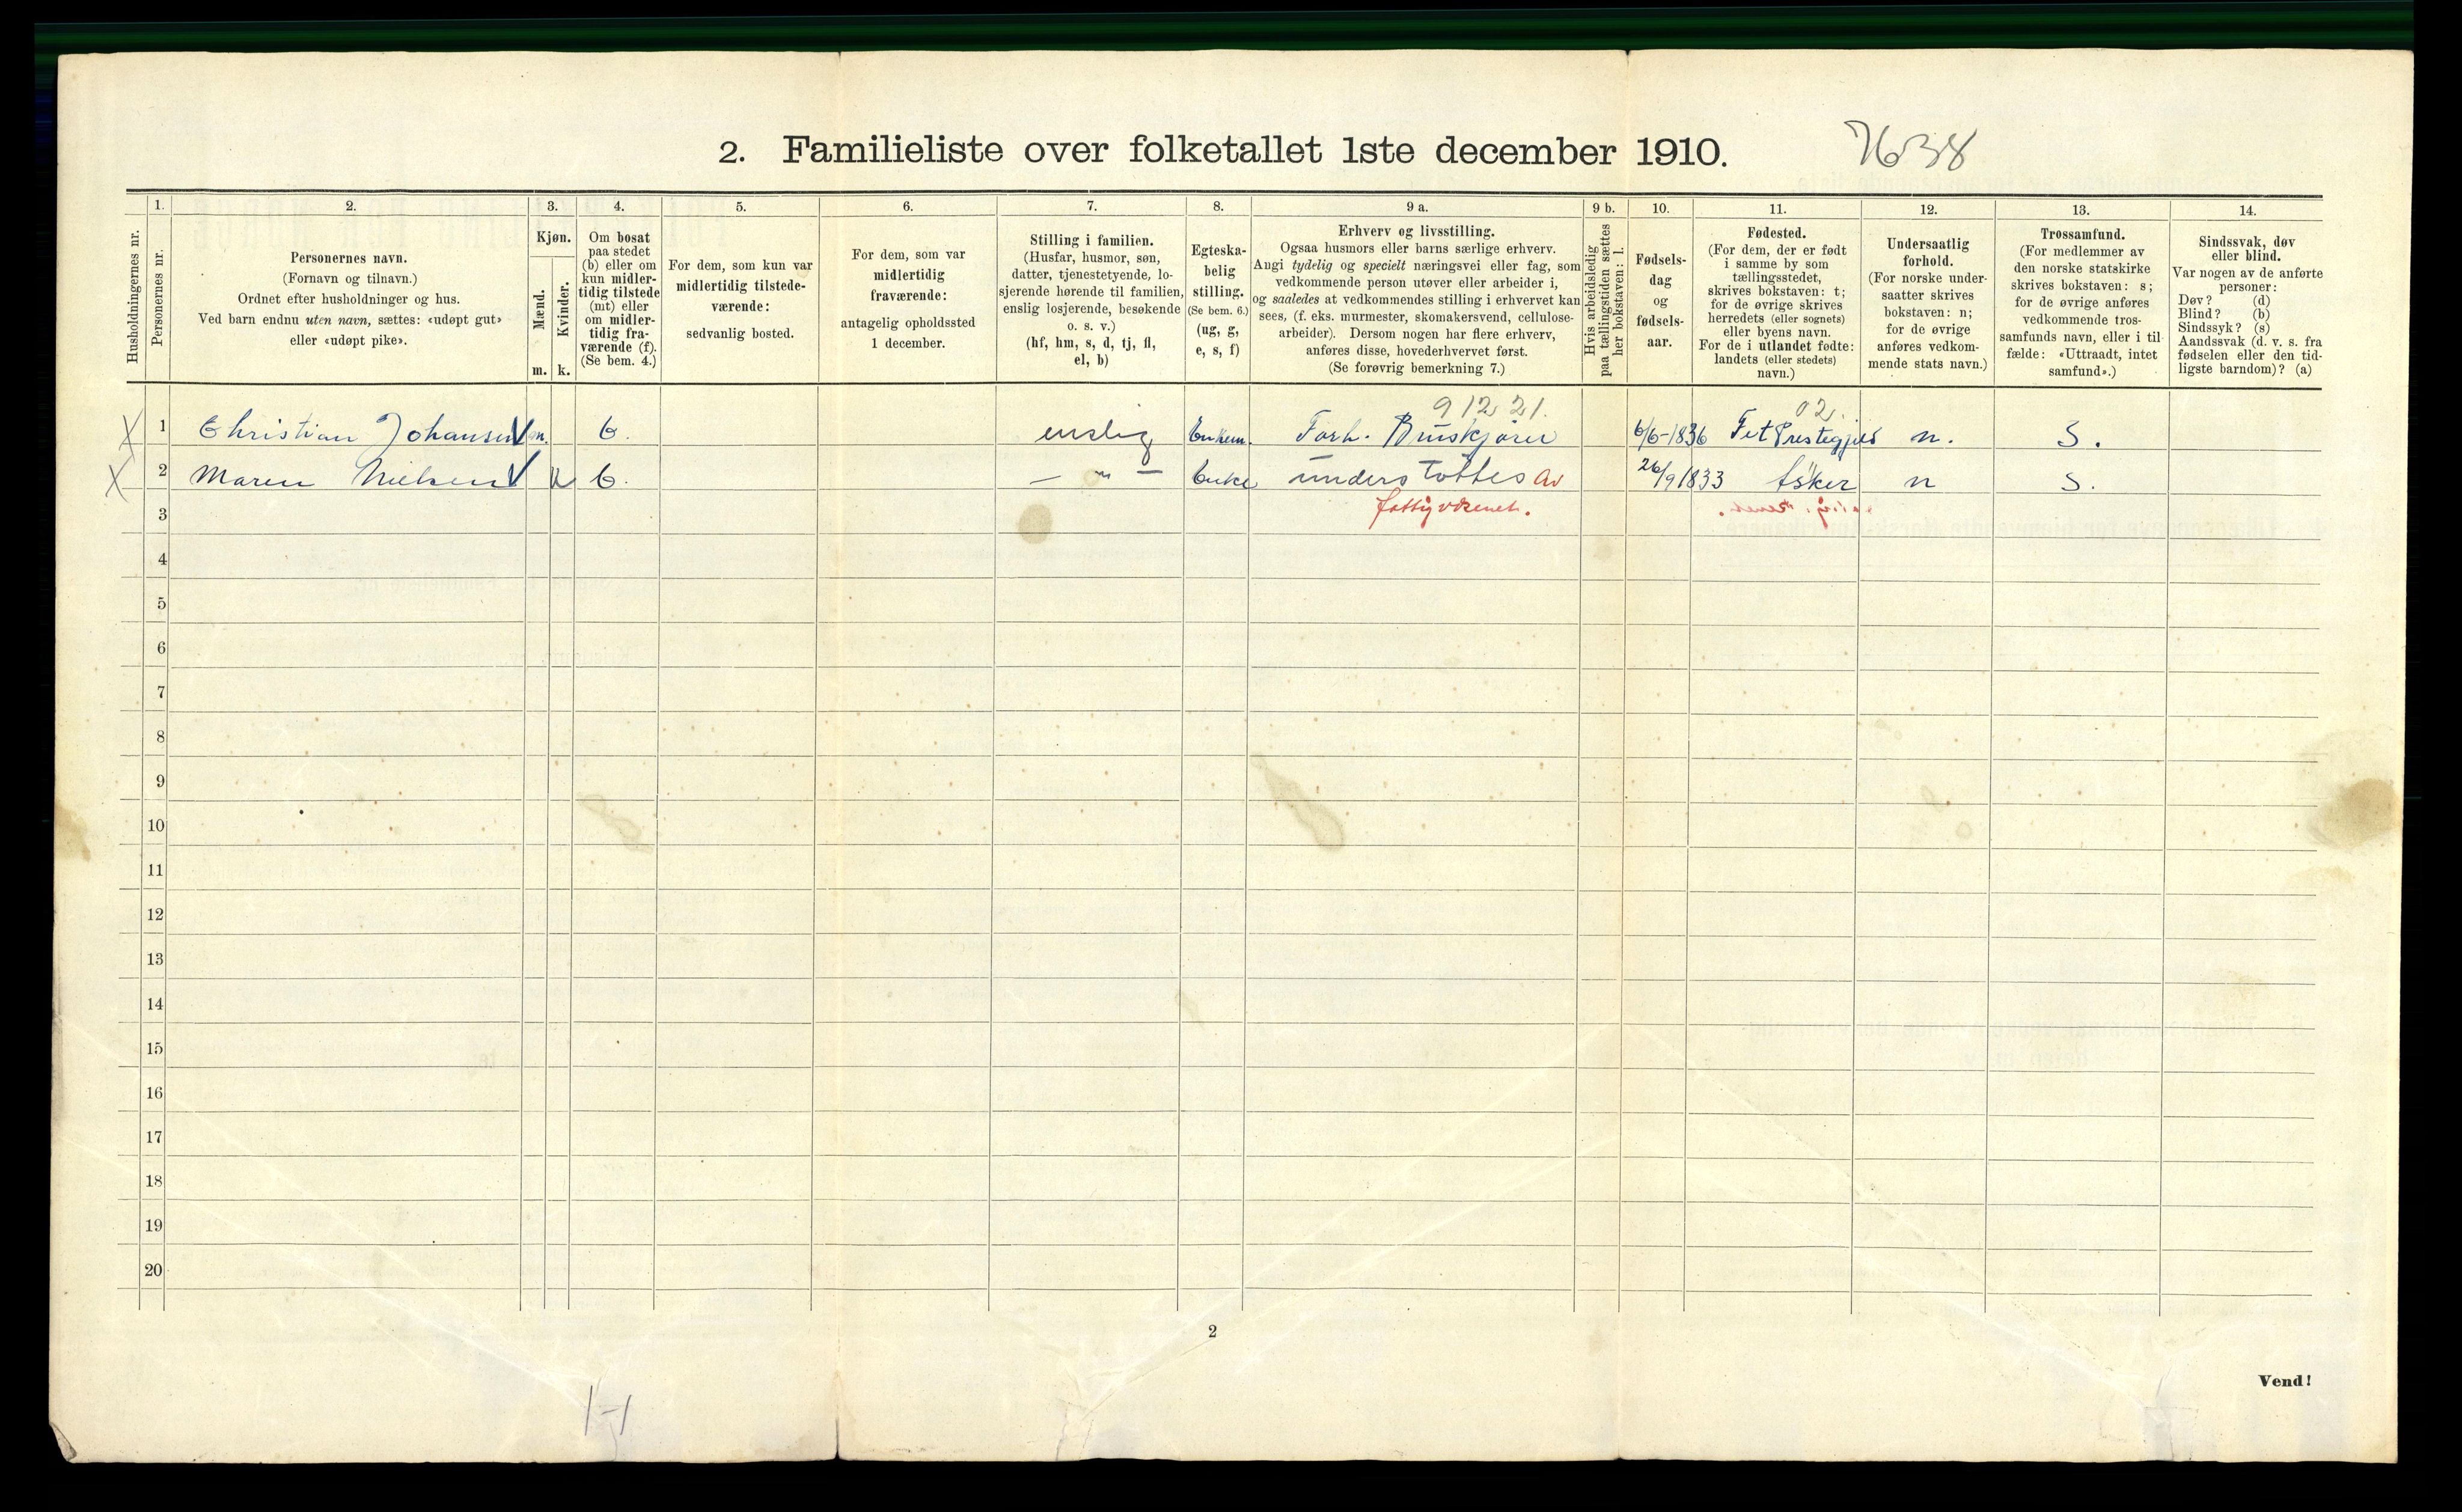 2. Familieliste over folketallet 1ste december 1910.
7638
Husholdningernes nr.
1.
Personernes nr.
2.
Personernes navn.
(Fornavn og tilnavn.)
Ordnet efter husholdninger og hus.
Ved barn endnu uten navn, sættes: «udøpt gut»
eller «udøpt pike».
3.
Kjøn.
Mænd.
Kvinder.
m.
k.
4.
Om bosat
paa stedet
(b) eller om
kun midler-
tidig tilstede
(mt) eller
om midler-
tidig fra-
værende (f).
(Se bem. 4.)
5.
For dem, som kun var
midlertidig tilstede-
værende:
sedvanlig bosted.
6.
For dem, som var
midlertidig
fraværende:
antagelig opholdssted
1 december.
7.
Stilling i familien.
(Husfar, husmor, søn,
datter, tjenestetyende, lo-
sjerende hørende til familien,
enslig losjerende, besøkende
o. s. v.)
(hf, hm, s, d, tj, fl,
el, b)
8.
Egteska-
belig
stilling.
(Se bem. 6.)
(ug, g,
e, s, f)
9 a.
Erhverv og livsstilling.
Ogsaa husmors eller barns særlige erhverv.
Angi tydelig og specielt næringsvei eller fag, som
vedkommende person utøver eller arbeider i,
og saaledes at vedkommendes stilling i erhvervet kan
sees, (f. eks. murmester, skomakersvend, cellulose-
arbeider). Dersom nogen har flere erhverv,
anføres disse, hovederhvervet først.
(Se forøvrig bemerkning 7.)
9 b.
Hvis arbeidsledig
paa tællingstiden sættes
her bokstaven: l.
10.
Fødsels-
dag
og
fødsels-
aar.
11.
Fødested.
(For dem, der er født
i samme by som
tællingsstedet,
skrives bokstaven: t;
for de øvrige skrives
herredets (eller sognets)
eller byens navn.
For de i utlandet fødte:
landets (eller stedets)
navn.)
12.
Undersaatlig
forhold.
(For norske under-
saatter skrives
bokstaven: n;
for de øvrige
anføres vedkom-
mende stats navn.)
13.
Trossamfund.
(For medlemmer av
den norske statskirke
skrives bokstaven: s;
for de øvrige anføres
vedkommende tros-
samfunds navn, eller i til-
fælde: «Uttraadt, intet
samfund».)
14.
Sindssvak, døv
eller blind.
Var nogen av de anførte
personer:
Døv? (d)
Blind? (b)
Sindssyk? (s)
Aandssvak (d. v. s. fra
fødselen eller den tid-
ligste barndom)? (a)
91221. 02.
X 1 Christian Johansen m. b. enslig Enkem. Forh. Buskjører 6/6-1836 Fet Prestegjeld n. S.
X 2 Maren Nielsen k b. — " — Enke understöttes av 26/9 1833 Asker n S.
3 fattigvæsenet.
4
5
6
7
8
9
10
11
12
13
14
15
16
17
18
19
20
2
Vend!
1-1